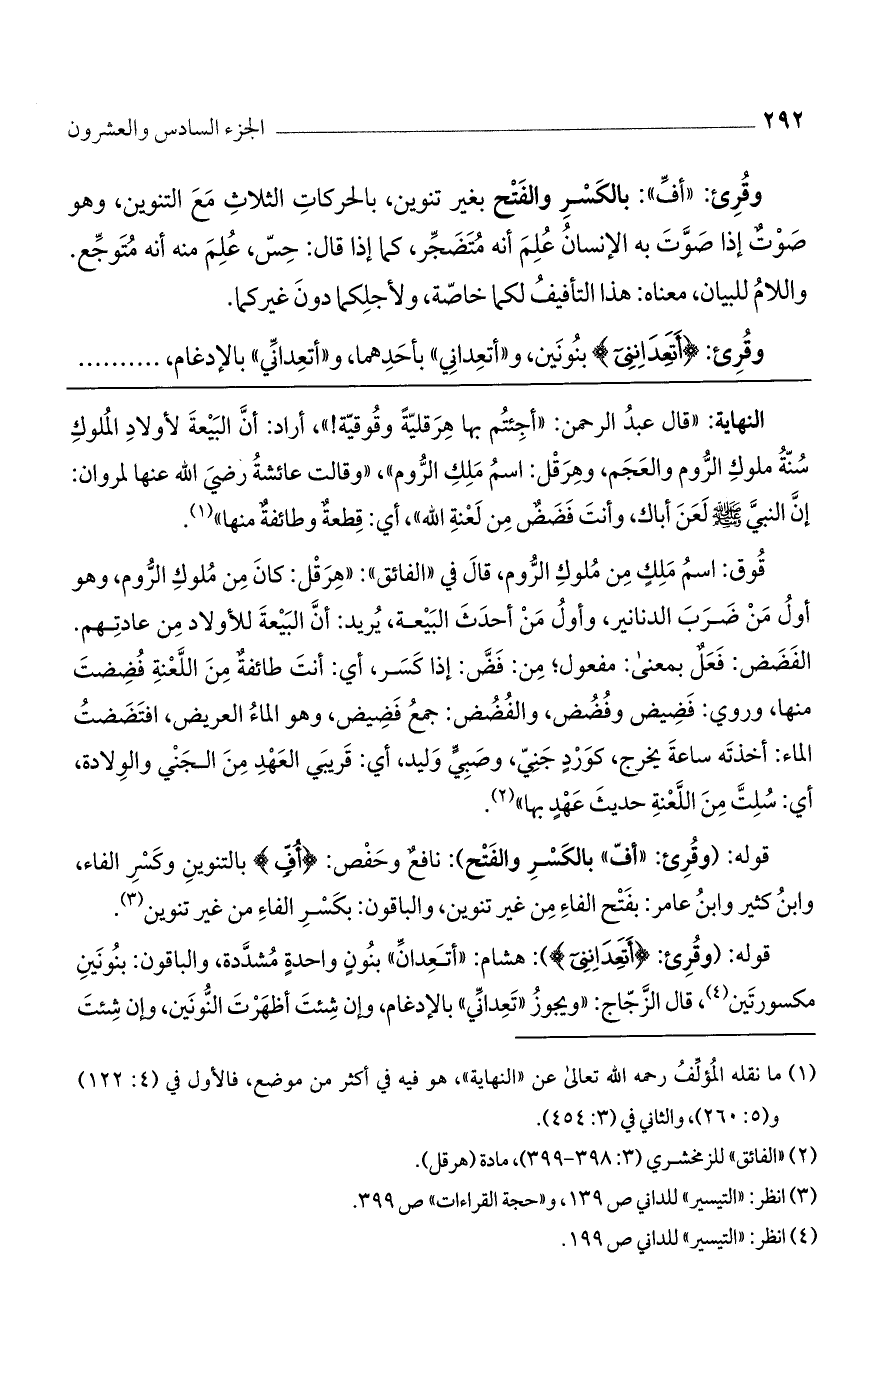 ٢٩٢ الجزء السادس والعشرون
وقُرِئ: «أفِّ»: بالكَسْرِ والفَتْح بغير تنوين، بالحركاتِ الثلاثِ مَعَ التنوين، وهو
صَوْتٌ إذا صَوَّتَ به الإنسانُ عُلِمَ أنه مُتَضَجِّر، كما إذا قال: حِسّ، عُلِمَ منه أنه مُتَوجِّع.
واللامُ للبيان، معناه: هذا التأفيفُ لكما خاصّة، ولأجلِكما دونَ غيركما.
وقُرِئ: ﴿أَتَعِدَانِنِىٓ﴾ بنُونَين، و«أتعِدانِي» بأحَدِهما، و«أتعِدانِّي» بالإدغام، ..........
النهاية: «قال عبدُ الرحمن: «أجِئتُم بها هِرَقليّةً وقُوقيّة!»، أراد: أنَّ البَيْعةَ لأولادِ المُلوكِ
سُنّةُ ملوكِ الرُّوم والعَجَم، وهِرَقْل: اسمُ مَلِكِ الرُّوم»، «وقالت عائشةُ رضيَ الله عنها لمروان:
إنَّ النبيَّ ﷺ لَعَنَ أباك، وأنتَ فَضَضٌ مِن لَعْنةِ الله»، أي: قِطعةٌ وطائفةٌ منها»(١).
قُوق: اسمُ مَلِكٍ مِن مُلوكِ الرُّوم، قالَ في «الفائق»: «هِرَقْل: كانَ مِن مُلوكِ الرُّوم، وهو
أولُ مَنْ ضَرَبَ الدنانير، وأولُ مَنْ أحدَثَ البَيْعة، يُريد: أنَّ البَيْعةَ للأولاد مِن عادتِهم.
الفَضَض: فَعَلٌ بمعنىٰ: مفعول؛ مِن: فَضَّ: إذا كَسَر، أي: أنتَ طائفةٌ مِنَ اللَّعْنةِ فُضِضتَ
منها، وروي: فَضِيض وفُضُض، والفُضُض: جمعُ فَضِيض، وهو الماءُ العريض، افتَضَضتُ
الماء: أخذتَه ساعةَ يخرج، كوَرْدٍ جَنِيّ، وصَبِيٍّ وَليد، أي: قَريبَي العَهْدِ مِنَ الجَنْي والوِلادة،
أي: سُلِتَّ مِنَ اللَّعْنةِ حديثَ عَهْدٍ بها»(٢).
قوله: (وقُرِئ: «أفّ» بالكَسْرِ والفَتْح): نافعٌ وحَفْص: ﴿أُفٍّ﴾ بالتنوينِ وكَسْرِ الفاء،
وابنُ كثير وابنُ عامر: بفَتْح الفاءِ مِن غير تنوين، والباقون: بكَسْرِ الفاءِ من غير تنوين(٣).
قوله: (وقُرِئ: ﴿أَتَعِدَانِنِىٓ﴾): هشام: «أتَعِدانِّ» بنُونٍ واحدةٍ مُشدَّدة، والباقون: بنُونَينِ
مكسورتَين(٤)، قال الزَّجّاج: «ويجوزُ «تَعِدانِّي» بالإدغام، وإن شِئتَ أظهَرْتَ النُّونَين، وإن شِئتَ
(١) ما نقله المُؤلِّفُ رحمه الله تعالىٰ عن «النهاية»، هو فيه في أكثر من موضع، فالأول في (٤: ١٢٢)
و(٥: ٢٦٠)، والثاني في (٣: ٤٥٤).
(٢) «الفائق» للزمخشري (٣: ٣٩٨-٣٩٩)، مادة (هرقل).
(٣) انظر: «التيسير» للداني ص ١٣٩، و«حجة القراءات» ص ٣٩٩.
(٤) انظر: «التيسير» للداني ص ١٩٩.